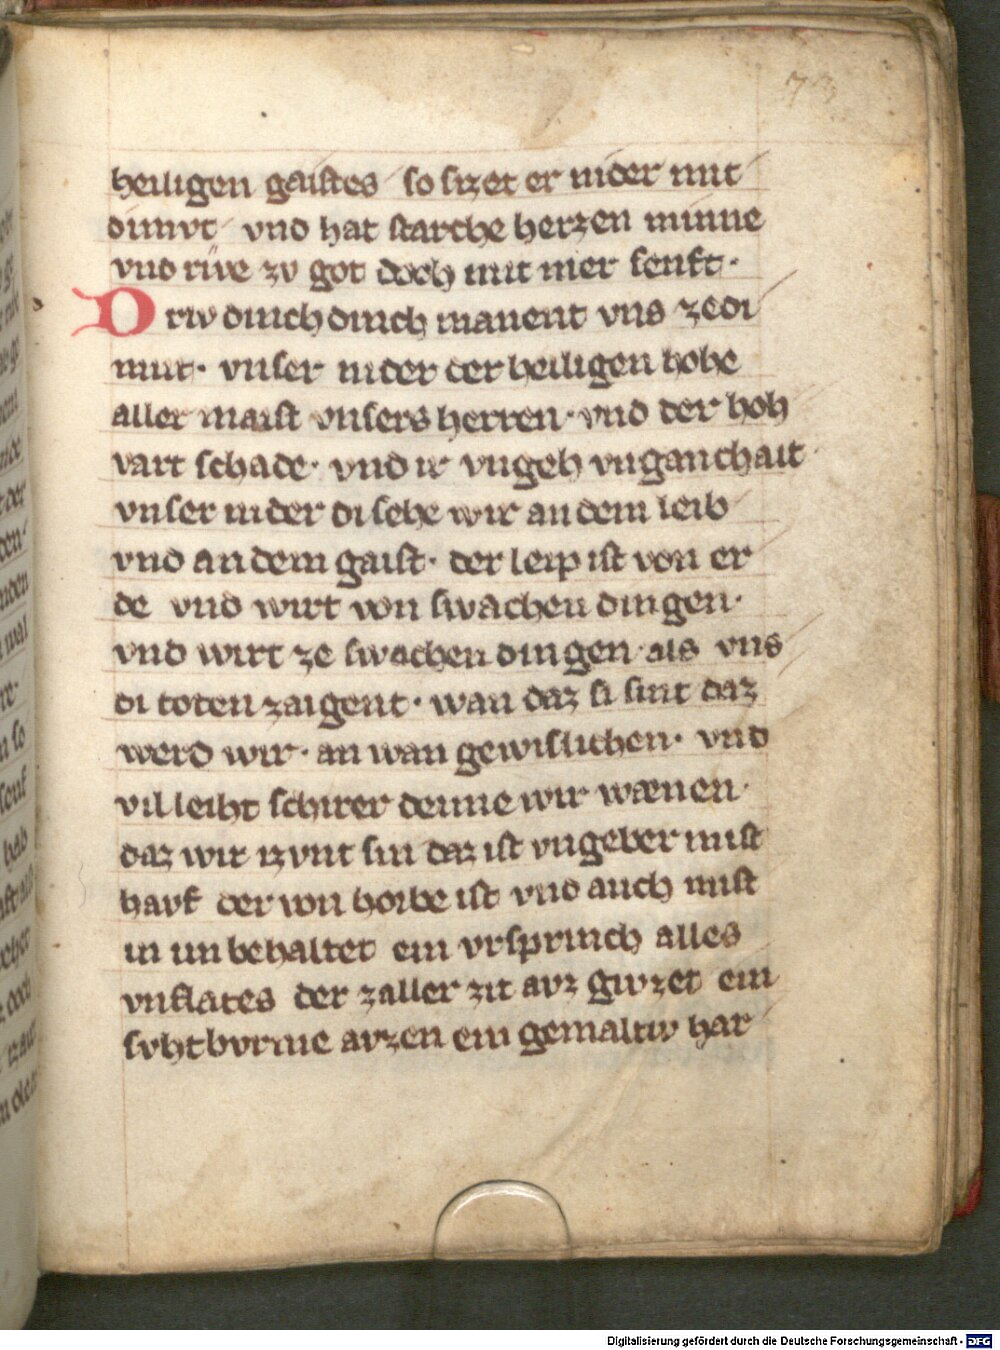 73
heiligen gaistes so sizet er nider mit
dimvt vnd hat starche herzen minne
vnd rive zv got doch mit mer senft·
Driv dinch dinch manent vns ze di
mut· vnser nider der heiligen hohe
aller maist vnsers herren· vnd der hoh
vart schade· vnd ir vngeh vnganchait·
vnser nider di sehe wir an dem leib
vnd an dem gaist· der leip ist von er
de vnd wirt von swachen dingen·
vnd wirt ze swachen dingen· als vns
di toten zaigent· wan daz si sint daz
werd wir· an wan gewislichen· vnd
vil leiht schirer denne wir wænen·
daz wir izvnt sin daz ist vngeber mist
havf der inn horbe ist vnd auch mist
in im behaltet ein vrsprinch alles
vnflates der zaller zit avz givzet ein
svhtbvrnne avzen ein gemaltiv har
Digitalisierung gefördert durch die Deutsche Forschungsgemeinschaft - DFG